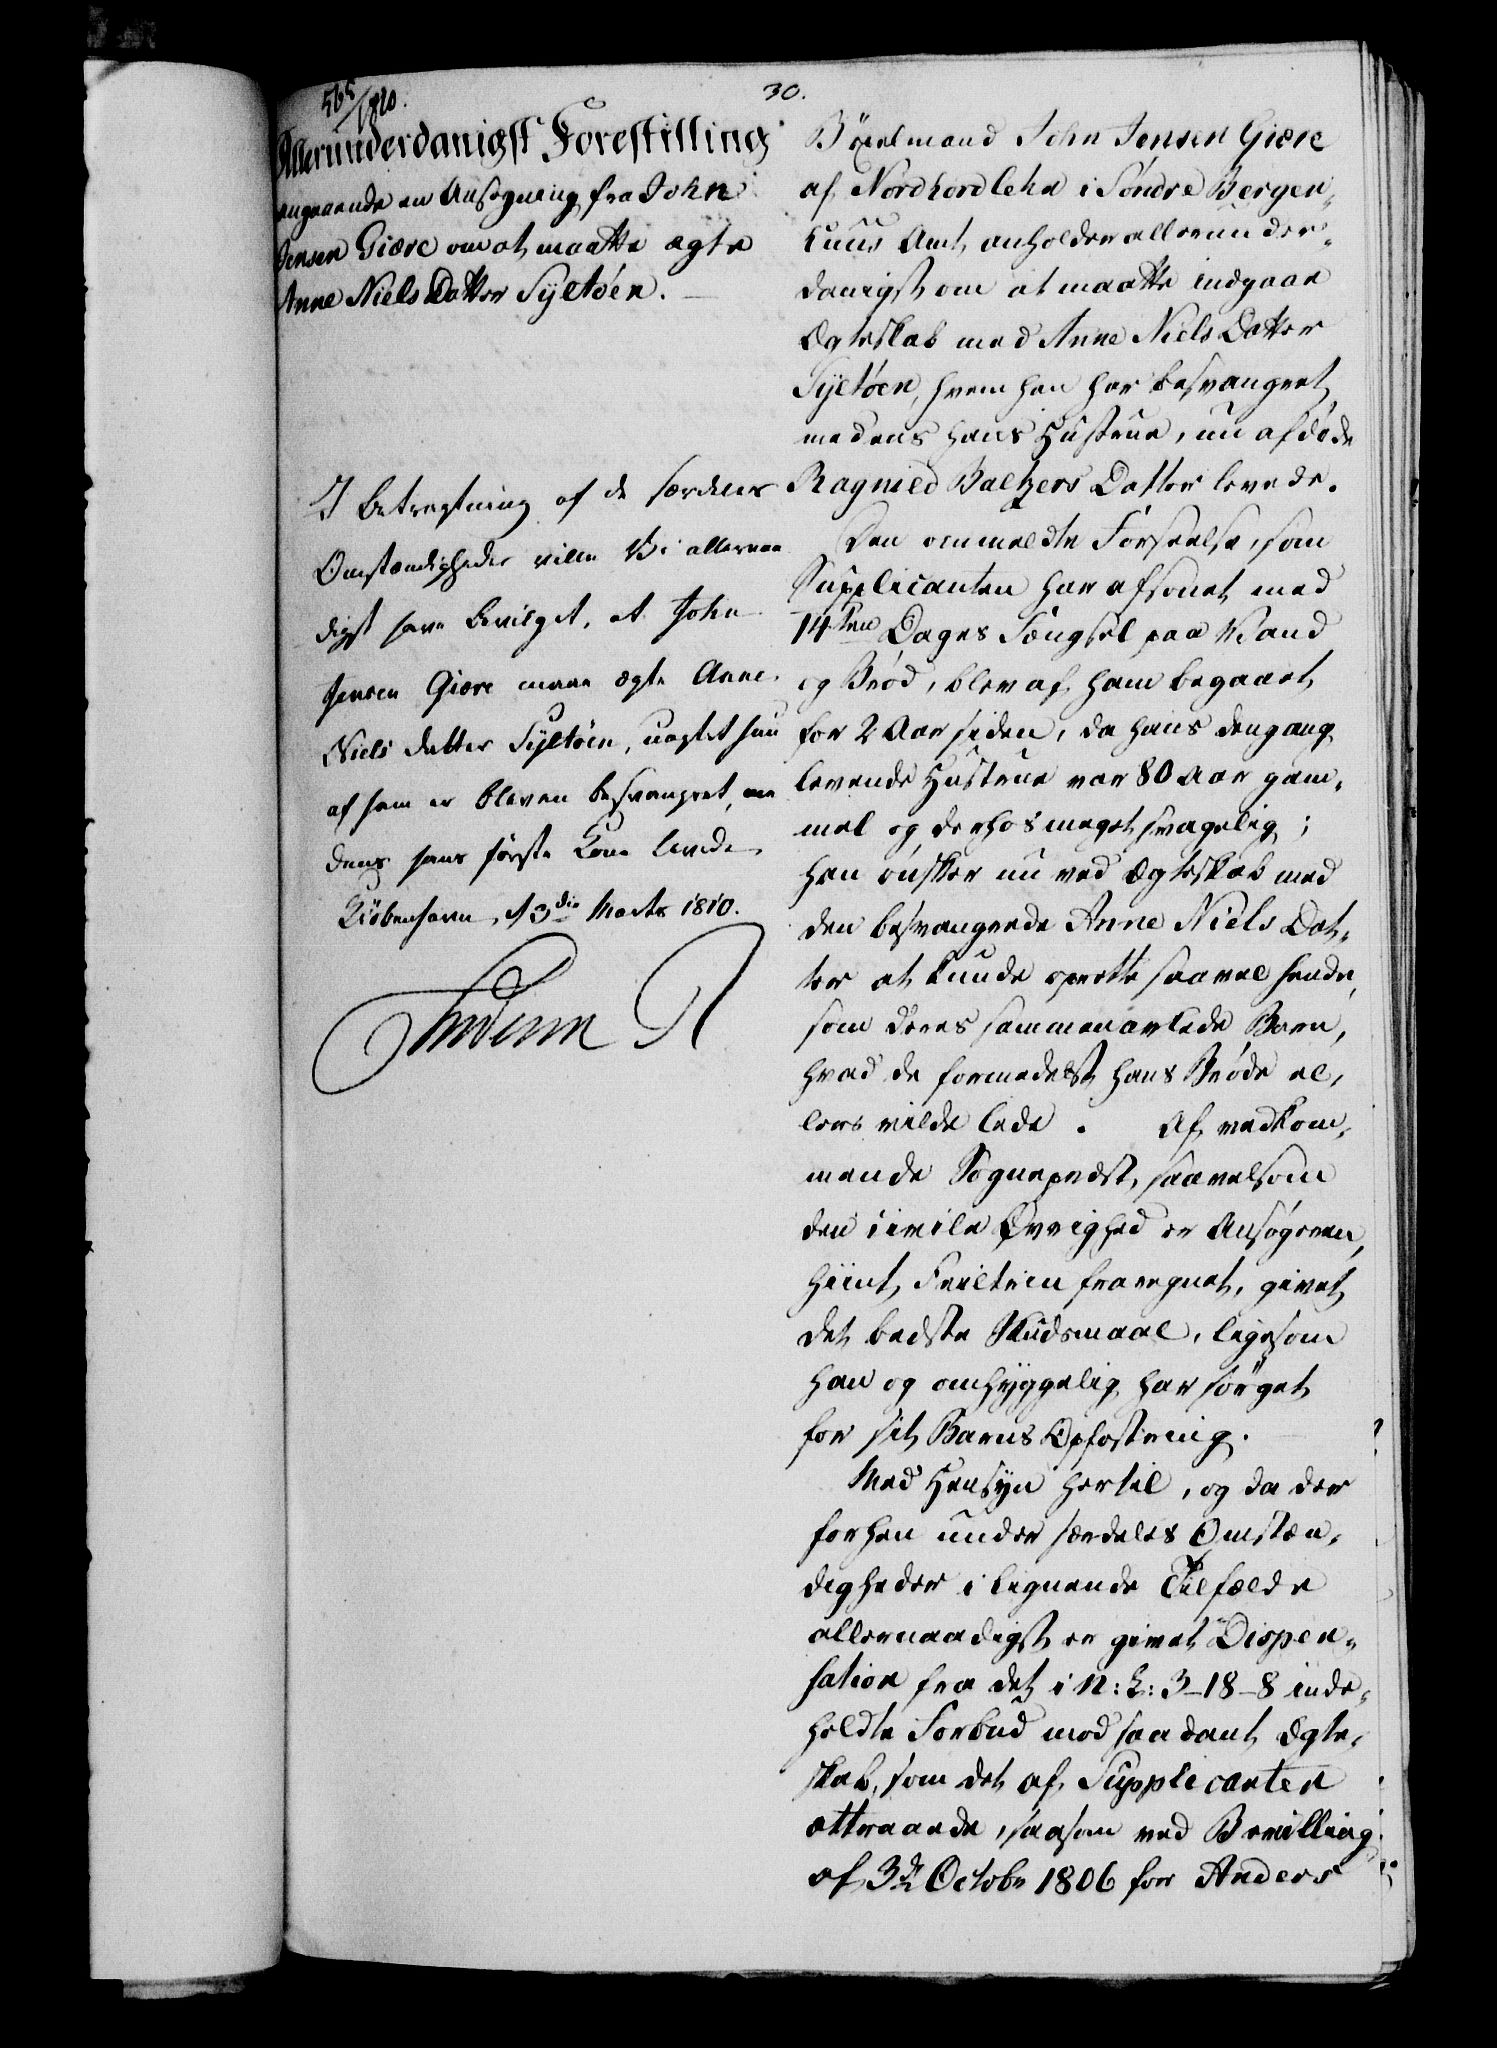 30.
565/1810.
Allerunderdanigst Forestilling
angaaende en Ansøgning fra John
Jensen Giære om at maatte ægte
Anne Niels Datter Syltøen. —
I betragtning af de særdeles
Omstændigheder ville Vi allernaa
digst have bevilget, at John
Jensen Giære maae ægte Anne
Niels datter Syltøen, uagtet hun
af ham er bleven besvangret, me
dens hans første Kone levede
Kiöbenhavn, d 3die Marts 1810.
Frederik R
Böxelmand John Jensen Giære
af Nordhordlehn i Søndre Bergen-
huus Amt, anholder allerunder-
danigst om at maatte indgaae
Ægteskab med Anne Niels Datter
Syltøen, hvem han har besvangret,
medens hans Hustrue, nu afdøde
Ragnild Baltzers Datter levede.
Den ommeldte Forseelse, som
Supplicanten har afsonet med
14ten Dages Fængsel paa Vand
og Brød, blev af ham begaaet
for 2 Aar siden, da hans dengang
levende Hustrue var 80 Aar gam-
mel og derhos meget svagelig;
han ønsker nu ved Ægteskab med
den besvangrede Anne Niels Dat-
ter at kunde oprette saavel hende,
som deres sammenavlede Barn,
hvad de formedelst hans Brøde el-
lers vilde lide. Af vedkom-
mende Sognepræst, saavelsom
den civile Øvrighed er Ansøgeren,
hiint Feiltrin fraregnet, givet
det bedste Skudsmaal, ligesom
han og omhyggelig har sörget
for sit Barns Opfostring.
Med Hensyn hertil, og da der
forhen under særdeles Omstæn-
digheder i lignende Tilfælde
allernaadigst er givet Dispen-
sation fra det i N: L: 3-18-8 inde-
holdte Forbud mod saadant Ægte-
skab, som det af Supplicanten
attraaede, saasom ved Bevilling
af 3de Octobr 1806 for Anders